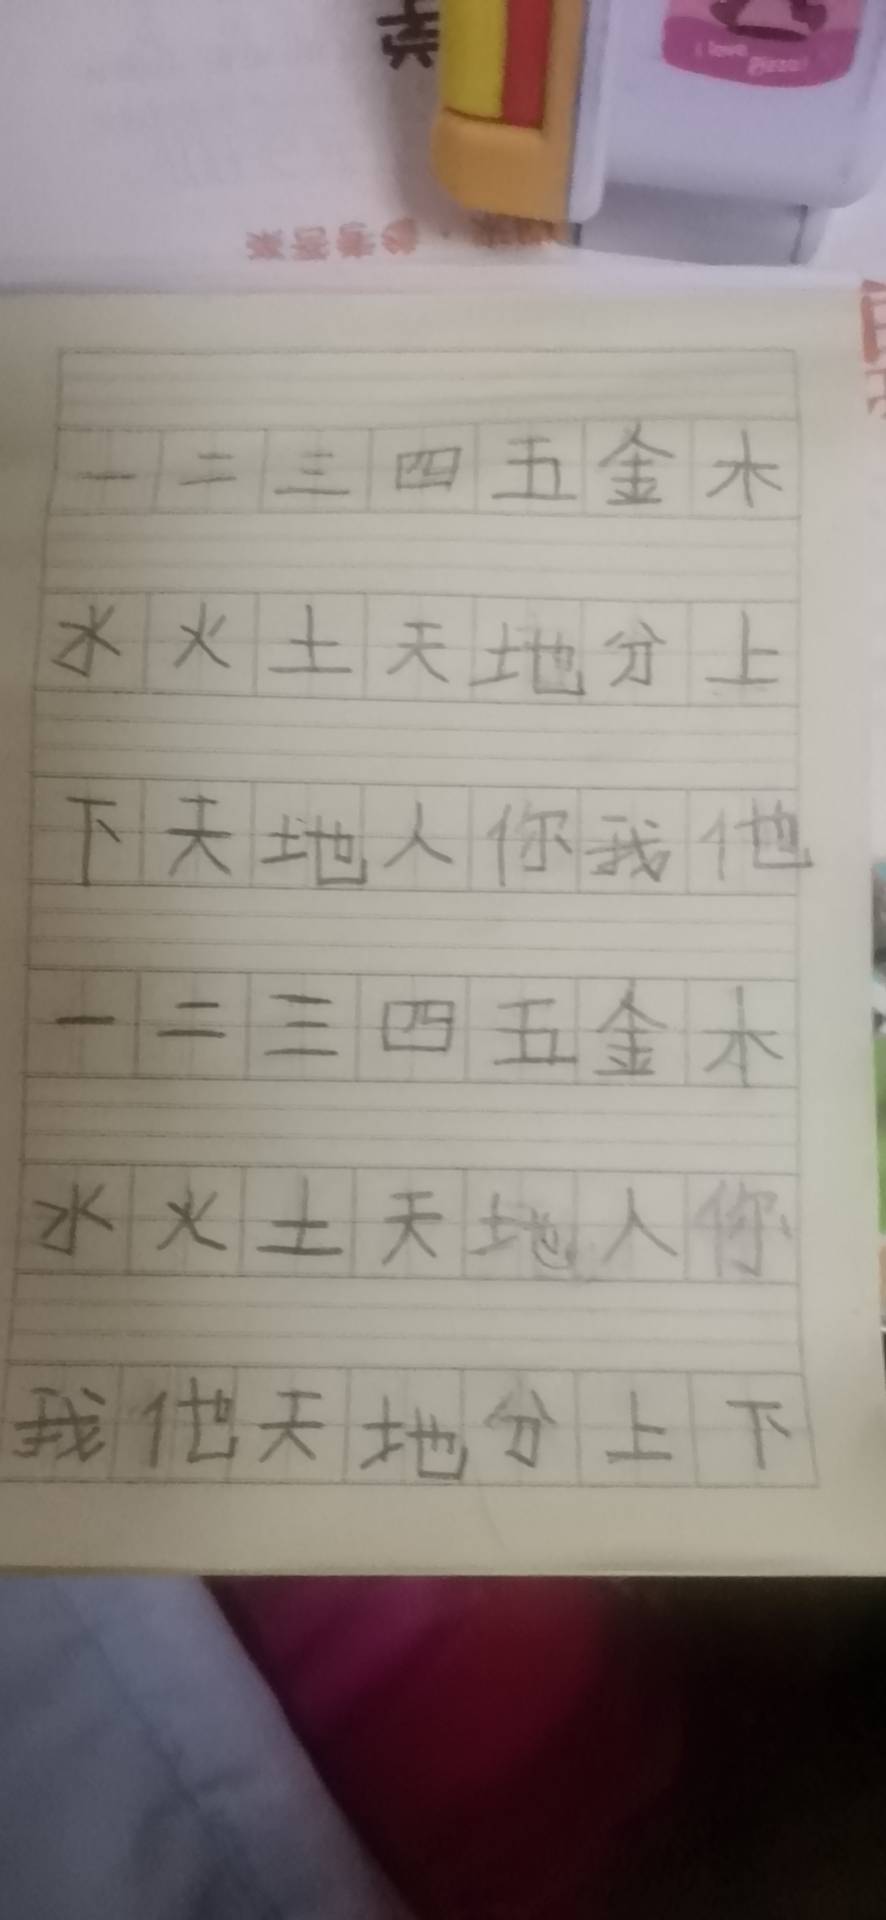 I love
Pizza!
一二三四五金木
水火土天地分上
下天地人你我他
一二三四五金木
水火土天地人你
我他天地分上下